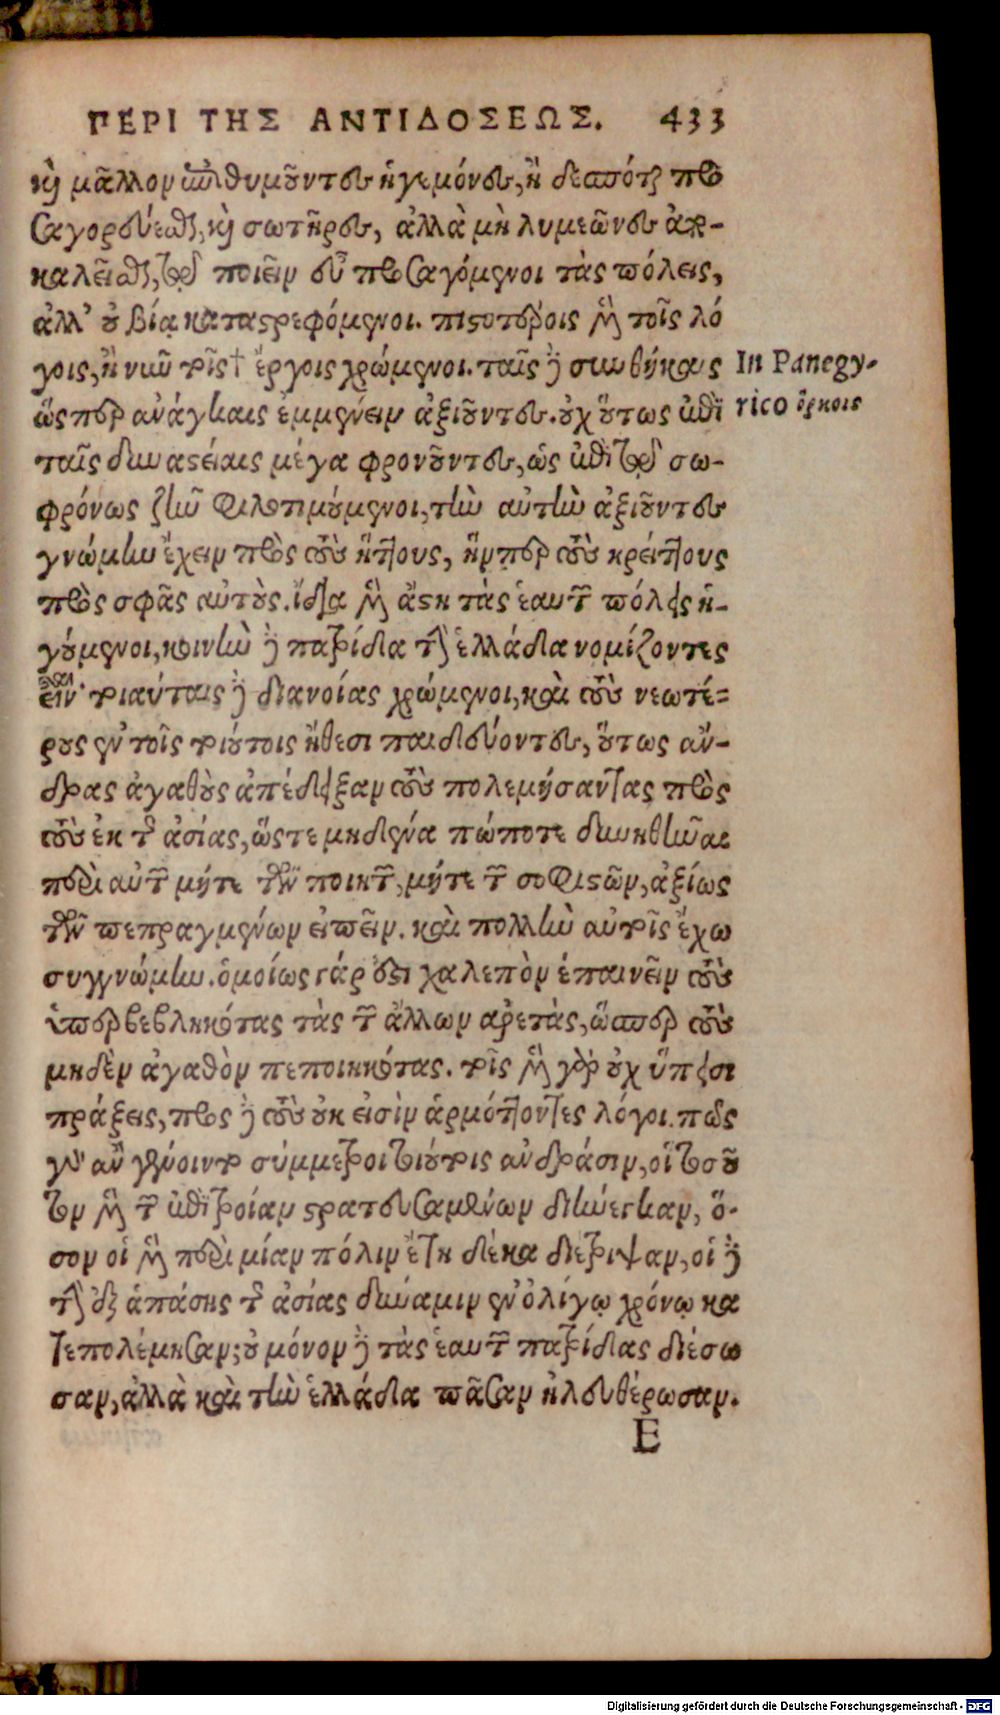 ΠΕΡΙ ΤΗΣ ΑΝΤΙΔΟΣΕΩΣ. 433
καὶ μᾶλλον ἐπιθυμοῦντες ἡγεμόνες, ἢ δεσπόται προ
σαγορεύεσθαι, καὶ σωτῆρες, ἀλλὰ μὴ λυμεῶνες ἀπο-
καλεῖσθαι, τῷ ποιεῖν εὖ προσαγόμενοι τὰς πόλεις,
ἀλλ' οὐ βίᾳ καταστρεφόμενοι. πιστοτέροις μὲν τοῖς λό
γοις, ἢ νῦν τοῖς† ἔργοις χρώμενοι. ταῖς δὲ συνθήκαις
ὥσπερ ἀνάγκαις ἐμμένειν ἀξιοῦντες. οὐχ οὕτως ἐπὶ
ταῖς δυναστείαις μέγα φρονοῦντες, ὡς ἐπὶ τῷ σω-
φρόνως ζῆν φιλοτιμούμενοι, τὴν αὐτὴν ἀξιοῦντες
γνώμην ἔχειν πρὸς τοὺς ἥττους, ἥνπερ τοὺς κρείττους
πρὸς σφᾶς αὐτούς. ἴδια μὲν ἄστη τὰς ἑαυτῶν πόλεις ἡ-
γούμενοι, κοινὴν δὲ πατρίδα τὴν ἑλλάδα νομίζοντες
εἶναι. τοιαύταις δὲ διανοίαις χρώμενοι, καὶ τοὺς νεωτέ=
ρους ἐν τοῖς τοιούτοις ἤθεσι παιδεύοντες, οὕτως ἄν-
δρας ἀγαθοὺς ἀπέδειξαν τοὺς πολεμήσαντας πρὸς
τοὺς ἐκ τῆς ἀσίας, ὥστε μηδένα πώποτε δυνηθῆναι
περὶ αὐτῶν μήτε τῶν ποιητῶν, μήτε τῶν σοφιστῶν, ἀξίως
τῶν πεπραγμένων εἰπεῖν. καὶ πολλὴν αὐτοῖς ἔχω
συγγνώμην. ὁμοίως γάρ ἐστι χαλεπὸν ἐπαινεῖν τοὺς
ὑπερβεβληκότας τὰς τῶν ἄλλων ἀρετὰς, ὥσπερ τοὺς
μηδὲν ἀγαθὸν πεποιηκότας. τοῖς μὲν γὰρ οὐχ ὕπεισι
πράξεις, πρὸς δὲ τοὺς οὐκ εἰσὶν ἁρμόττοντες λόγοι. πῶς
γὰρ ἂν γένοιντο σύμμετροι τοιούτοις ἀνδράσιν, οἳ τοσοῦ
τον μὲν τῶν ἐπὶ τροίαν στρατευσαμένων διήνεγκαν, ὅ-
σον οἱ μὲν περὶ μίαν πόλιν ἔτη δέκα διέτριψαν, οἱ δὲ
τὴν ἐξ ἁπάσης τῆς ἀσίας δύναμιν ἐν ὀλίγῳ χρόνῳ κα
τεπολέμησαν; οὐ μόνον δὲ τὰς ἑαυτῶν πατρίδας διέσω
σαν, ἀλλὰ καὶ τὴν ἑλλάδα πᾶσαν ἠλευθέρωσαν.
E
In Panegy-
rico ὅρκοις
Digitalisierung gefördert durch die Deutsche Forschungsgemeinschaft - DFG